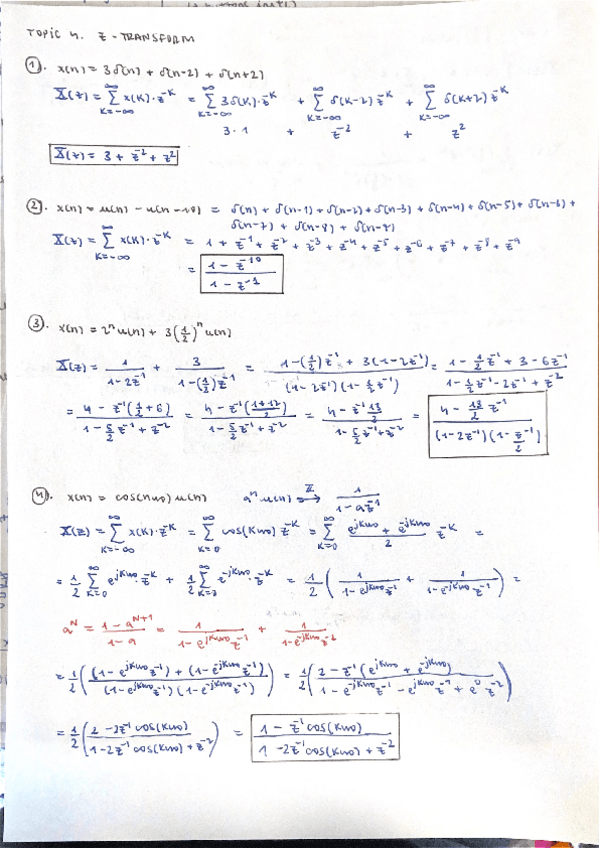 TOPIC 4. Z-TRANSFORM
1). x(n) = 3δ(n) + δ(n-2) + δ(n+2)
X(z) = ∑_{k=-∞}^{∞} x(k)·z^{-k} = ∑_{k=-∞}^{∞} 3δ(k)·z^{-k} + ∑_{k=-∞}^{∞} δ(k-2) z^{-k} + ∑_{k=-∞}^{∞} δ(k+2) z^{-k}
3·1 + z^{-2} + z^{2}
X(z) = 3 + z^{-2} + z^{2}
2). x(n) = u(n) - u(n-10) = δ(n) + δ(n-1) + δ(n-2) + δ(n-3) + δ(n-4) + δ(n-5) + δ(n-6) +
δ(n-7) + δ(n-8) + δ(n-9)
X(z) = ∑_{k=-∞}^{∞} x(k)·z^{-k} = 1 + z^{-1} + z^{-2} + z^{-3} + z^{-4} + z^{-5} + z^{-6} + z^{-7} + z^{-8} + z^{-9}
= (1 - z^{-10})/(1 - z^{-1})
3). x(n) = 2^n u(n) + 3(1/2)^n u(n)
X(z) = 1/(1-2z^{-1}) + 3/(1-(1/2)z^{-1}) = (1-(1/2)z^{-1} + 3(1-2z^{-1}))/((1-2z^{-1})(1-1/2 z^{-1})) = (1 - 1/2 z^{-1} + 3 - 6z^{-1})/(1 - 1/2 z^{-1} - 2z^{-1} + z^{-2})
= (4 - z^{-1}(1/2+6))/(1 - 5/2 z^{-1} + z^{-2}) = (4 - z^{-1}((1+12)/2))/(1 - 5/2 z^{-1} + z^{-2}) = (4 - z^{-1} 13/2)/(1 - 5/2 z^{-1} + z^{-2}) = (4 - 13/2 z^{-1})/((1-2z^{-1})(1 - z^{-1}/2))
4). x(n) = cos(nω0) u(n) a^n u(n) →^Z 1/(1-az^{-1})
X(z) = ∑_{k=-∞}^{∞} x(k)·z^{-k} = ∑_{k=0}^{∞} cos(kω0) z^{-k} = ∑_{k=0}^{∞} (e^{jkω0} + e^{-jkω0})/2 z^{-k} =
= 1/2 ∑_{k=0}^{∞} e^{jkω0}·z^{-k} + 1/2 ∑ e^{-jkω0}·z^{-k} = 1/2 (1/(1-e^{jkω0}z^{-1}) + 1/(1-e^{-jkω0}z^{-1})) =
a^N = (1-a^{N+1})/(1-a) = 1/(1-e^{jkω0}z^{-1}) + 1/(1-e^{-jkω0}z^{-1})
= 1/2 (((1-e^{-jkω0}z^{-1}) + (1-e^{jkω0}z^{-1}))/((1-e^{jkω0}z^{-1})(1-e^{-jkω0}z^{-1}))) = 1/2 ((2 - z^{-1}(e^{jkω0} + e^{-jkω0}))/(1 - e^{jkω0}z^{-1} - e^{-jkω0}z^{-1} + e^{0} z^{-2}))
= 1/2 ((2 - 2z^{-1}cos(kω0))/(1 - 2z^{-1}cos(kω0) + z^{-2})) = (1 - z^{-1}cos(kω0))/(1 - 2z^{-1}cos(kω0) + z^{-2})